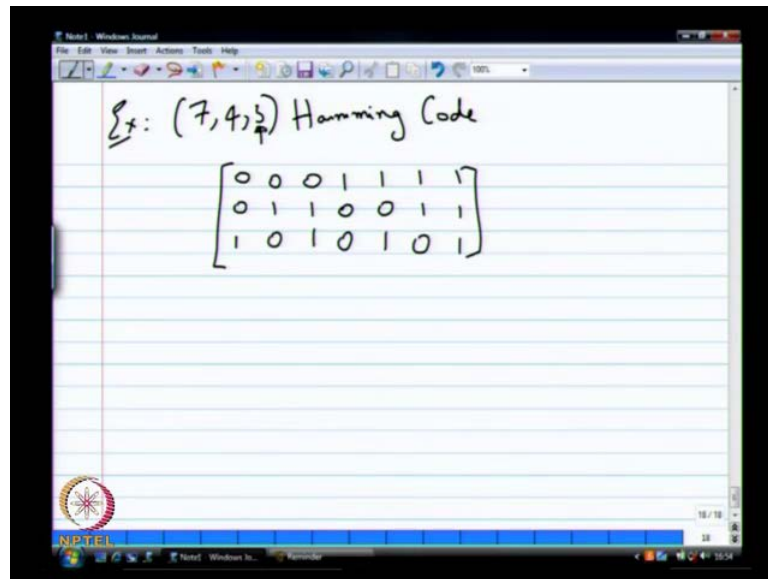 Note1 - Windows Journal
File Edit View Insert Actions Tools Help
100%
Ex: (7,4,3) Hamming Code
0 0 0 1 1 1 1
0 1 1 0 0 1 1
1 0 1 0 1 0 1
18 / 18
18
NPTEL
Note1 - Windows Jo... Reminder
16:54